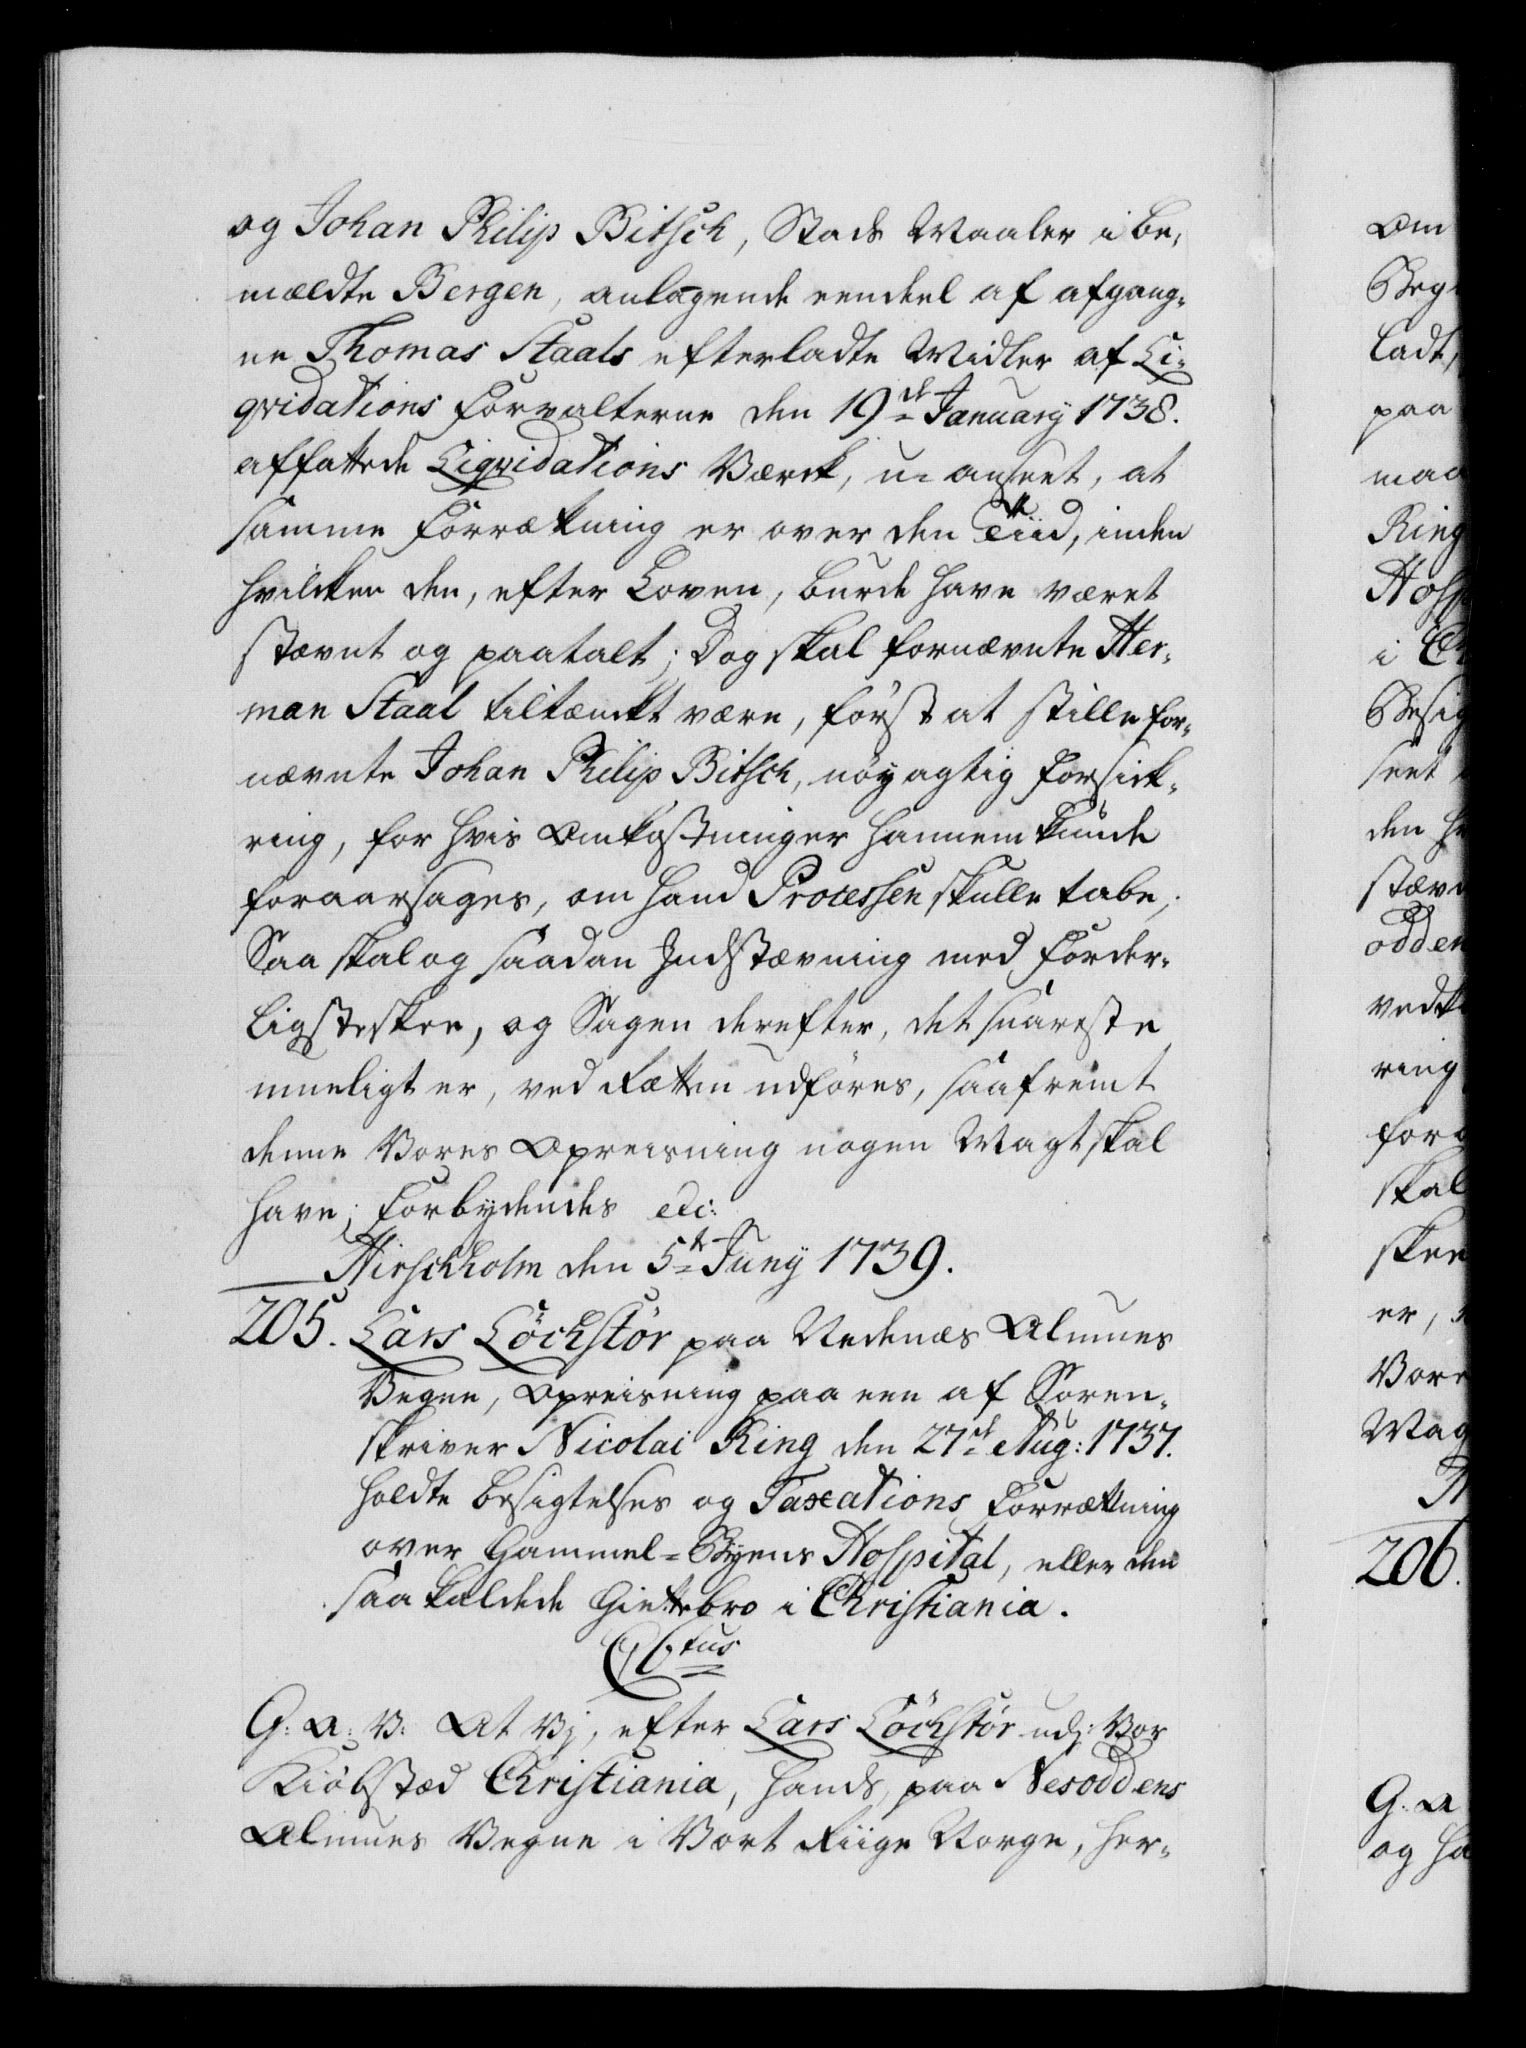 og Johan Philip Bitsch, Stads Maaler i be-
mældte Bergen, anlagende eendeel af afgang-
ne Thomas Staals efterladte Midler af Li-
qvidations Forvalterne den 19de January 1738.
affattede Liqvidations Værck, u-anseet, at
samme Forrætning er over den Tiid, inden
hvilcken den, efter Loven, burde have været
stævnt og paatalt; Dog skal fornævnte Her-
man Staal tiltænckt være, først at stille for-
nævnte Johan Philip Bitsch, nøyagtig Forsick-
ring, for hvis Omkostninger hannem kunde
foraarsages, om hand Processen skulle tabe,
Saa skal og saadan Indstævning med Forder-
ligste skee, og Sagen derefter, det snareste
mueligt er, ved Rætten udføres, saafremt
denne Vores Opreisning nogen Magt skal
have; Forbydendes etc:
Hirschholm den 5te Juny 1739.
205. Lars Löchstör paa Nedenæs Almues
Vegne, Opreisning paa een af Soren-
skriver Nicolai Ring den 27de Aug: 1737.
holdte Besigtelses og Taxations Forrætning
over Gammel-Byens Hospital, eller den
saa kaldede Giettebro i Christiania.
C 6tus
G: A: V: At Vj, efter Lars Löchstör udj Vor
Kiøbstæd Christiania, hands, paa Nesoddens
Almues Vegne i Vort Riige Norge, her-
Om
ladt,
paa
Ring
Hosp
i Ch
Besig
seet
den h
stæv
odden
ring
skal
skee
er,
Vore
Mag
H
206.
G: A
og ha